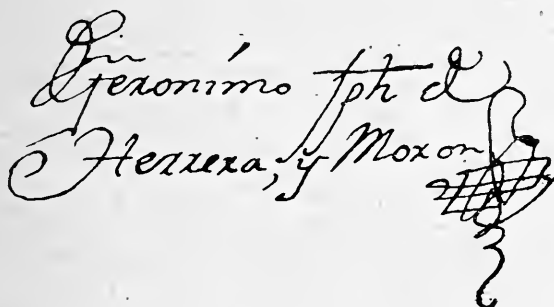 Geronimo Jph de
Herrera, y Moron